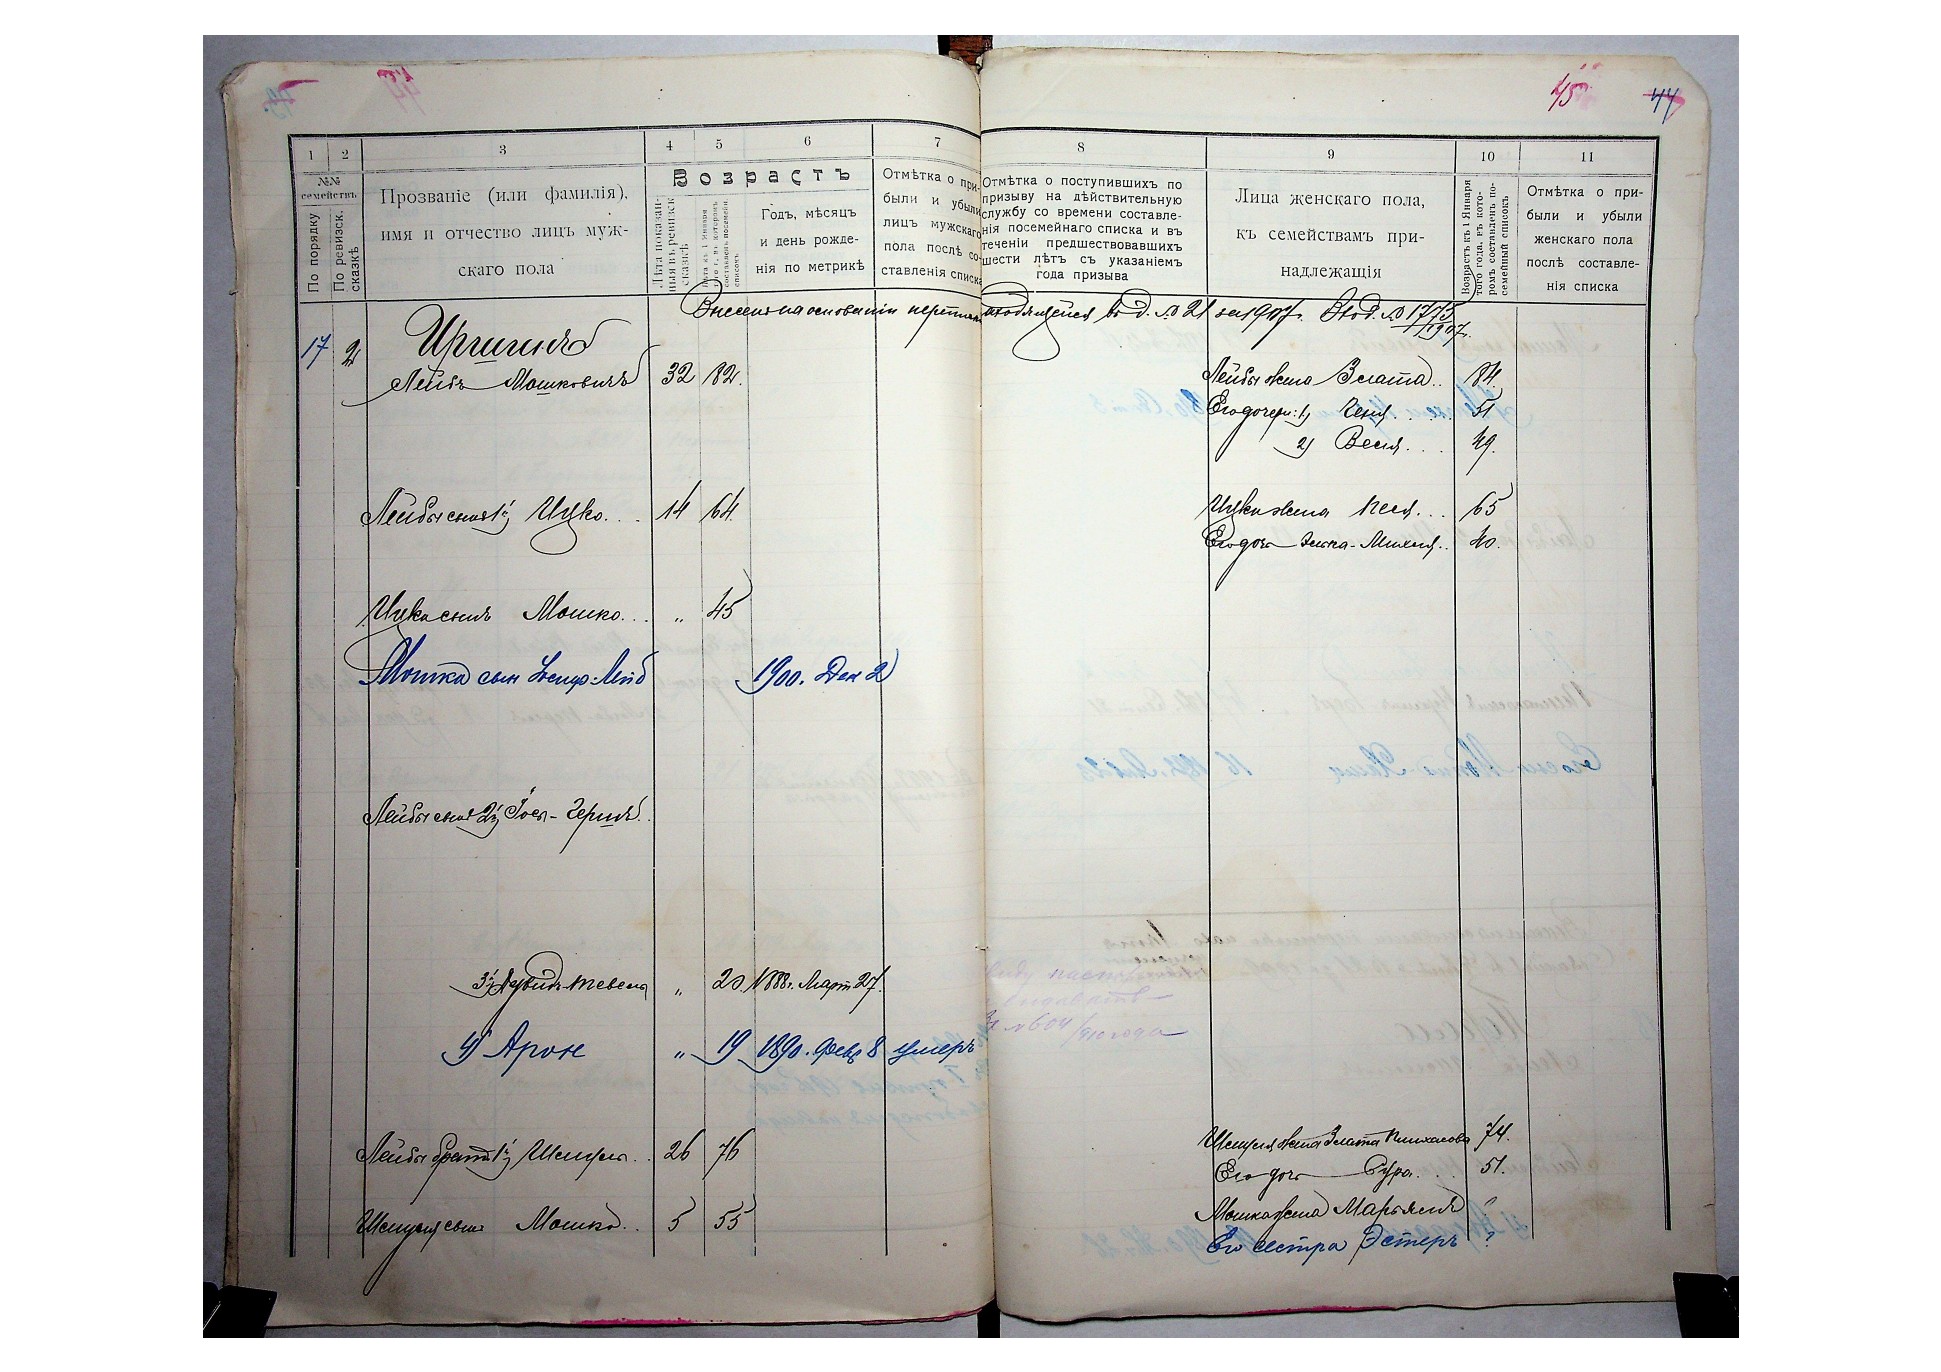 45 44
1 2 3 4 5 6 7 8 9 10 11
№№ семействъ
По порядку
По ревизск. сказкѣ
Прозваніе (или фамилія),
имя и отчество лицъ муж-
скаго пола
Возрастъ
Лѣта показан-
ныя въ ревизск
сказкѣ
Лѣта къ 1 Января
составленъ посемейн.
списокъ
Годъ, мѣсяцъ
и день рожде-
нія по метрикѣ
Отмѣтка о при-
были и убыли
лицъ мужскаго
пола послѣ со-
ставленія списка
Отмѣтка о поступившихъ по
призыву на дѣйствительную
службу со времени составле-
нія посемейнаго списка и въ
теченіи предшествовавшихъ
шести лѣтъ съ указаніемъ
года призыва
Лица женскаго пола,
къ семействамъ при-
надлежащія
Возрастъ къ 1 Января
того года, въ кото-
ромъ составленъ по-
семейный списокъ
Отмѣтка о при-
были и убыли
женскаго пола
послѣ составле-
нія списка
Внесена на основаніи находящейся въ д. № 21 за 1907 г. Вход. № 1773/1907 г.
17 2
Лейбъ Мошковичъ 32 82. Лейбы жена Злата.. 84.
Его дочери: 1) Ченя.... 51
2) Веся.... 49.
Лейбы сынъ 1й Ицко... 14 64. Ицка жена Песя... 65
Его дочь Михля.. 40.
Ицка сынъ Мошко... „ 45
Мошка сын 1900. Дек 2
Лейбы сынъ 2й Іось-Гершъ..
3й Тевель „ 20. 1888 г. Март 27.
4) Арон „ 19 1890. Февр 8 умеръ
Лейбы братъ 1й Шмуль.. 26 76 Шмуля жена Злата Пинхасова 74.
Его дочь Сура... 51.
Шмуля сынъ Мошко.. 5 55 Мошка жена Марьяся ?
Его сестра Эстеръ ?